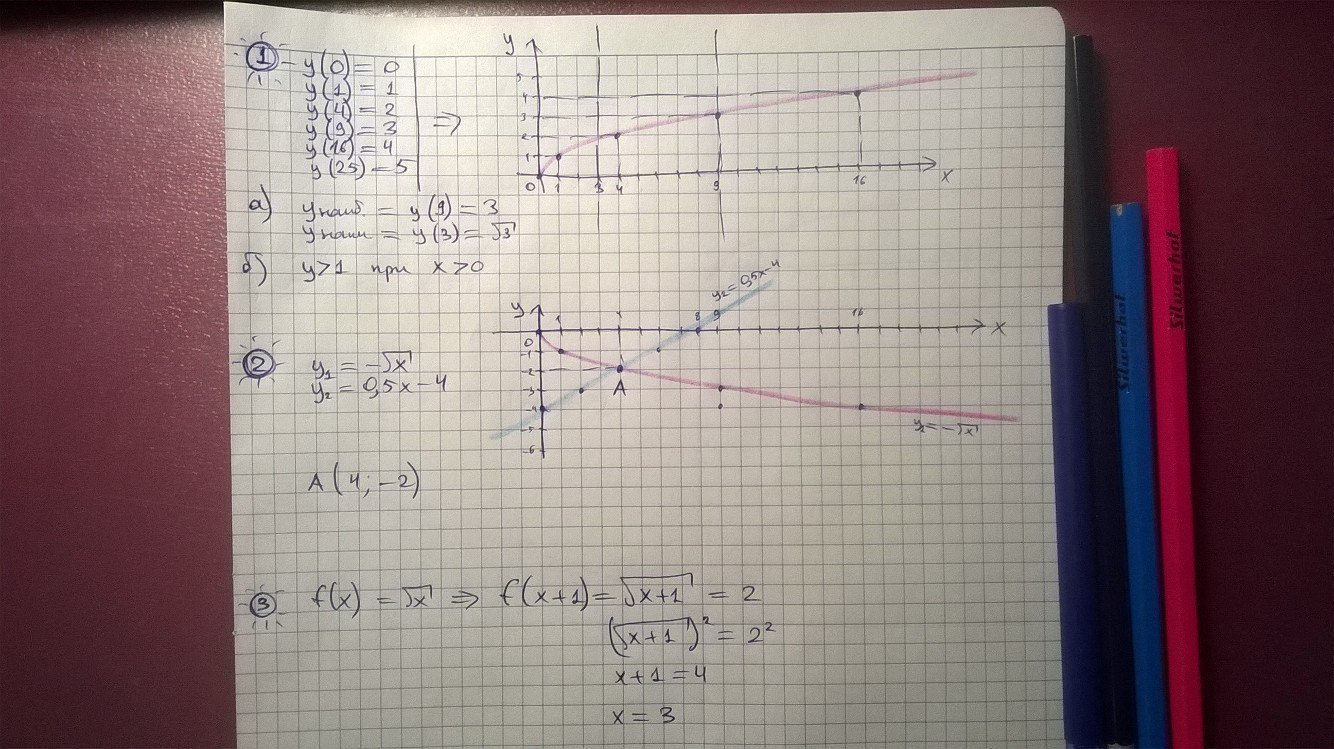 1
y(0) = 0
y(1) = 1
y(4) = 2
y(9) = 3
y(16) = 4
y(25) = 5
⇒
y
5
4
3
2
1
0 1 3 4 9 16 x
а) yнаиб. = y(9) = 3
yнаим = y(3) = √3
б) y>1 при x>0
2
y₁ = -√x
y₂ = 0,5x-4
y
y₂=0,5x-4
0 1 8 9 16 x
-1
-2
-3
-4
-5
-6
A
-√x
A(4; -2)
3
f(x) = √x ⇒ f(x+1) = √x+1 = 2
(√x+1)² = 2²
x+1 = 4
x = 3
Silwerhof
Silwerhof